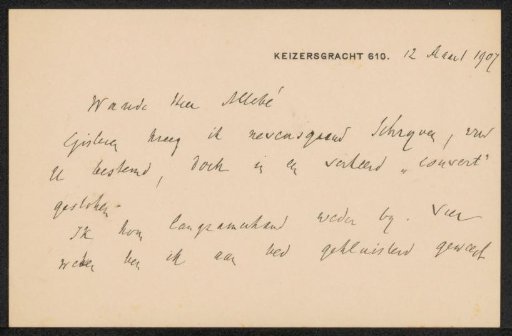 KEIZERSGRACHT 610. 12 Maart 1907
Waarde Heer Allebé
Gisteren kreeg ik nevensgaand schrijven, voor
U bestemd, doch in een verkeerd „couvert"
gestoken.
Ik kom langzamerhand weder bij. Vier
weken ben ik aan bed gekluisterd geweest